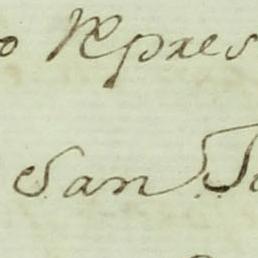 o Repres
San